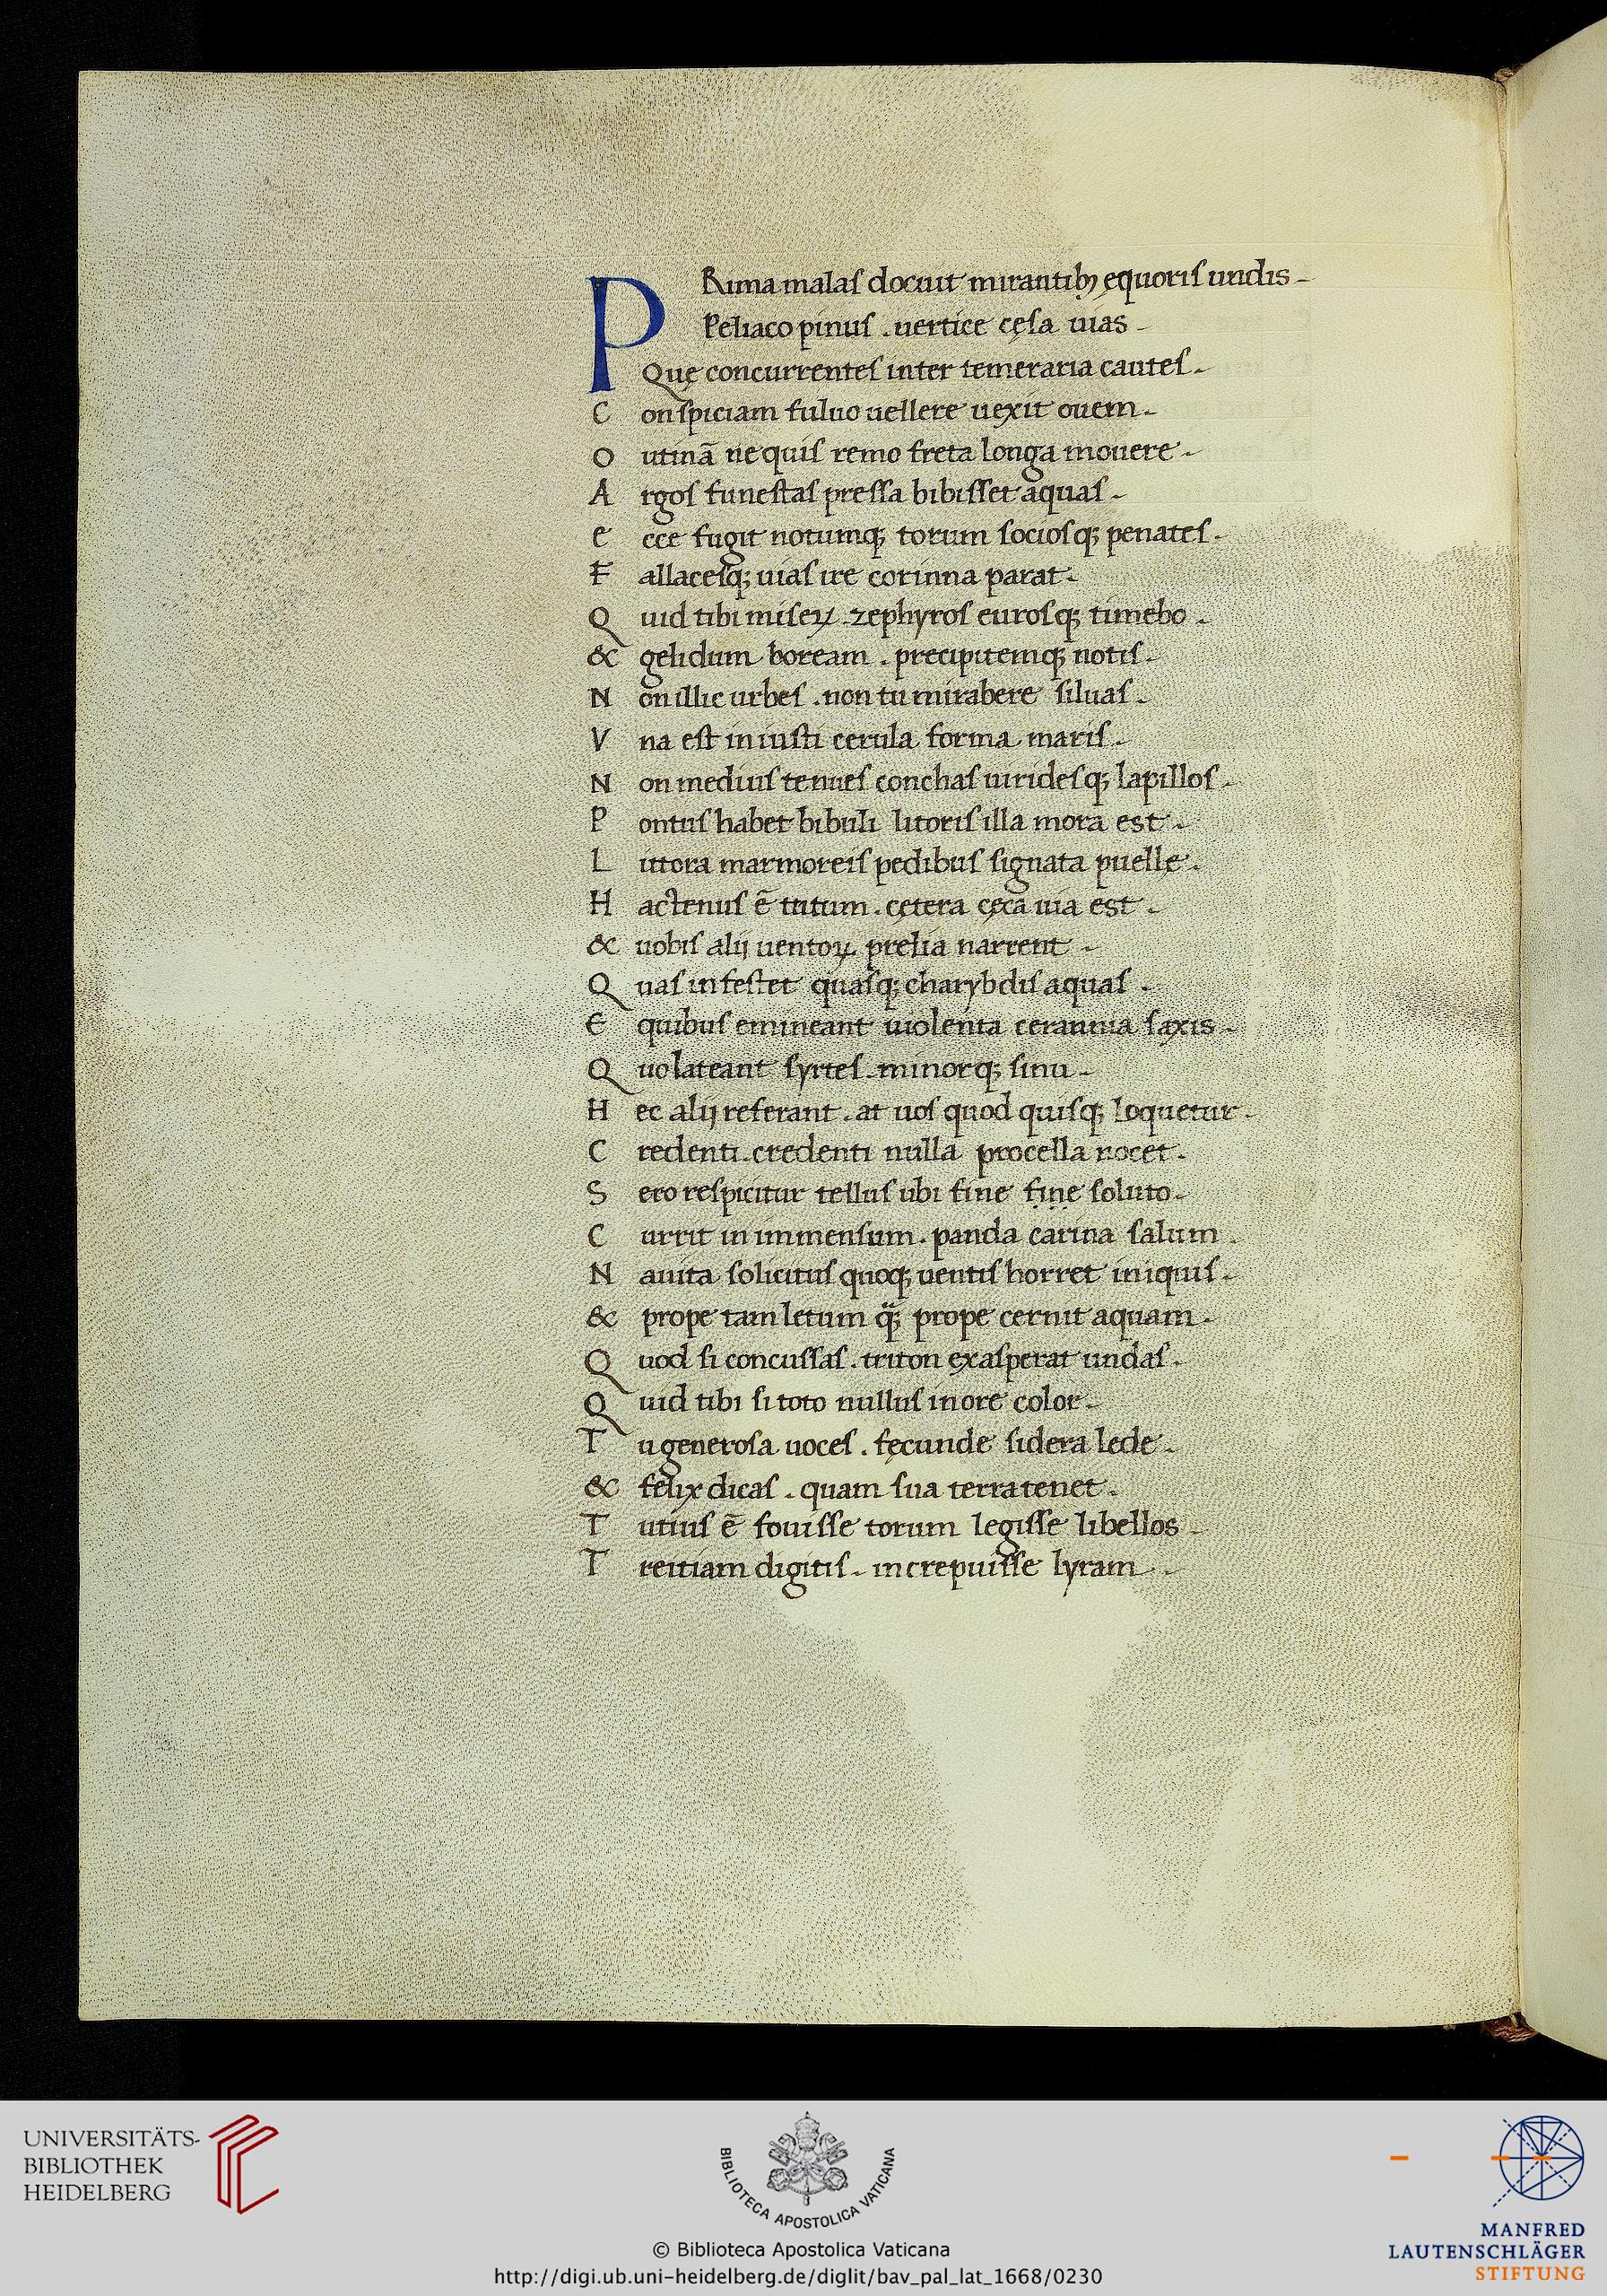 PRima malas docuit mirantibꝫ ęquoris undis
Peliaco pinus . uertice cęsa uias
Quę concurrentes inter temeraria cautes .
Conspiciam fuluo uellere uexit ouem .
O utinā ne quis remo freta longa mouere .
Argos funestas pressa bibisset aquas .
Ecce fugit notumqꝫ torum sociosqꝫ penates .
Fallacesqꝫ uias ire corinna parat .
Quid tibi miseꝝ . zephyros eurosqꝫ timebo .
& gelidum boream . precipitemqꝫ notis .
Non illic urbes . non tu mirabere siluas .
Vna est iniusti cerula forma maris .
Non medius tenues conchas uiridesqꝫ lapillos .
Pontus habet bibuli litoris illa mora est .
Littora marmoreis pedibus signata puellę .
Hactenus ē tutum . cętera cęca uia est .
& uobis alij uentoꝝ prelia narrent .
Quas infestet quasqꝫ charybdis aquas .
E quibus emineant uiolenta ceraunia saxis .
Quo lateant syrtes . minorqꝫ sinu .
Hec alij referant . at uos quod quisqꝫ loquetur .
Credenti . credenti nulla procella nocet .
Sero respicitur tellus ubi fine fine soluto .
Currit in immensum . panda carina salum .
Nauita solicitus quoqꝫ uentis horret iniquis .
& prope tam letum q̄ꝫ prope cernit aquam .
Quod si concussas . triton exasperat undas .
Quid tibi si toto nullus in ore color .
Tu generosa uoces . fęcunde sidera lede .
& felix dicas . quam sua terra tenet .
Tutius ē fouisse torum legisse libellos
Treitiam digitis . increpuisse lyram .
UNIVERSITÄTS-
BIBLIOTHEK
HEIDELBERG
BIBLIOTECA APOSTOLICA VATICANA
© Biblioteca Apostolica Vaticana
http://digi.ub.uni-heidelberg.de/diglit/bav_pal_lat_1668/0230
MANFRED
LAUTENSCHLÄGER
STIFTUNG